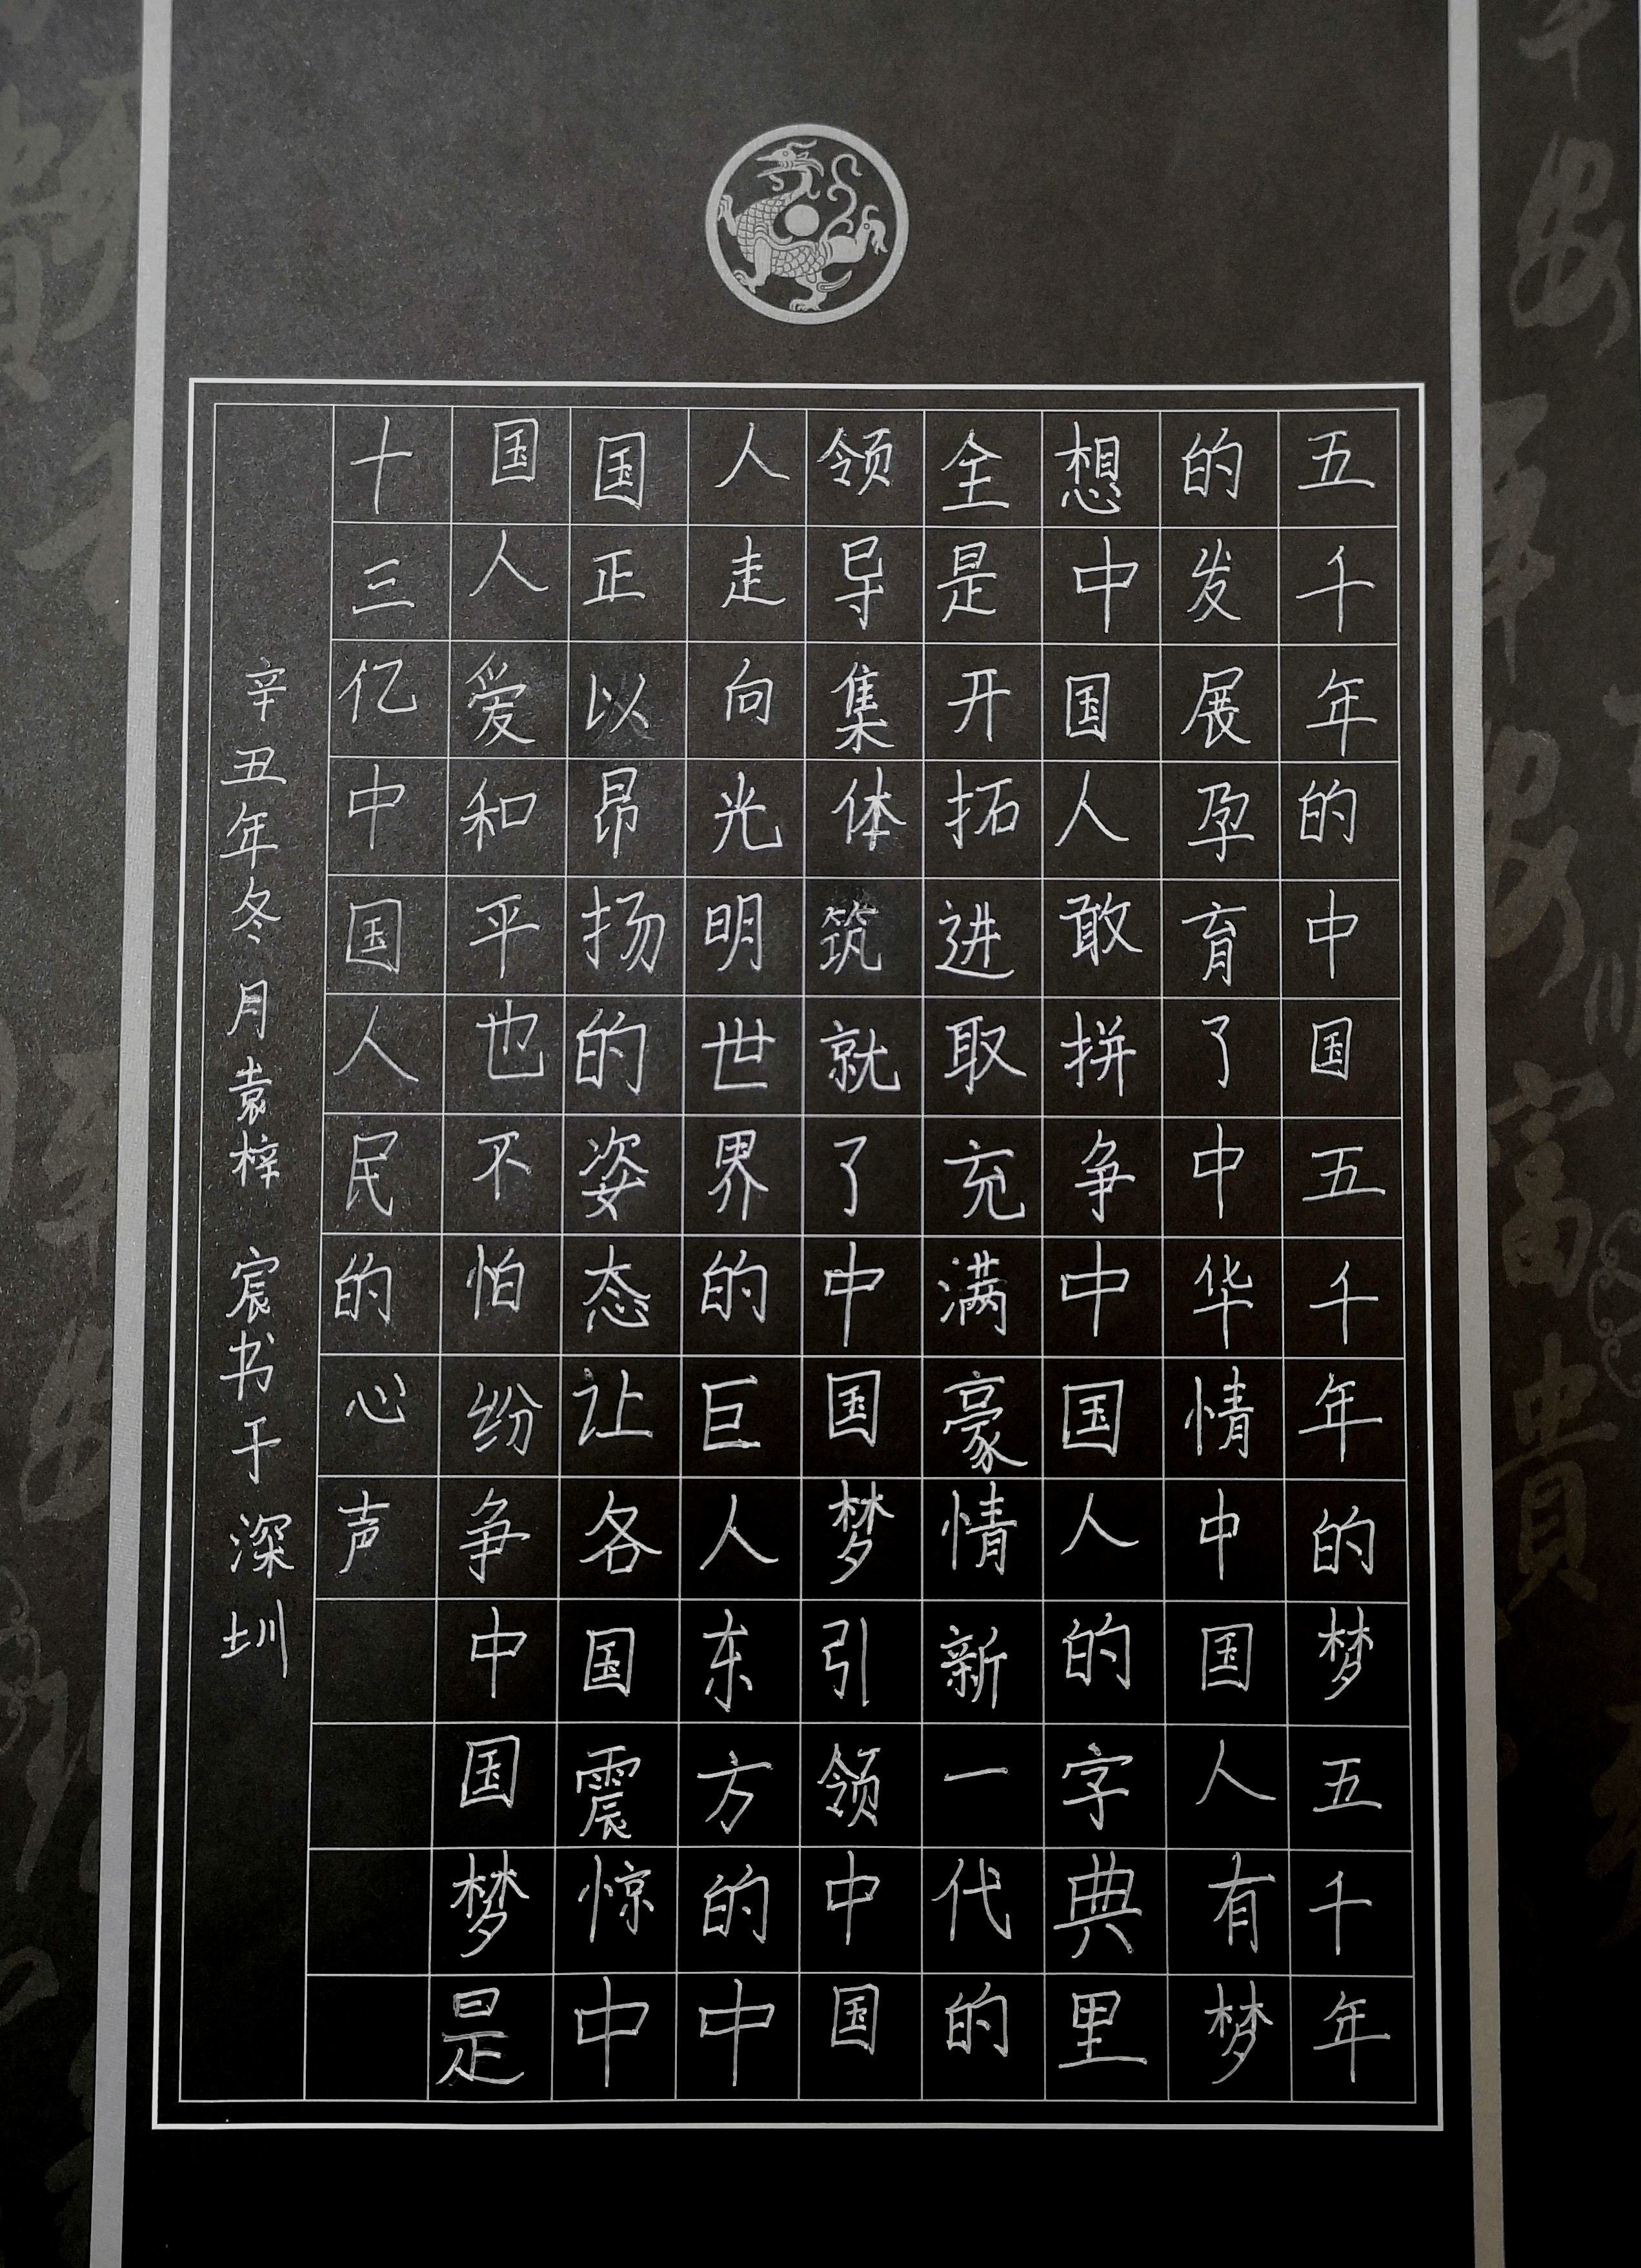 五千年的中国五千年的梦五千年
的发展孕育了中华情中国人有梦
想中国人敢拼争中国人的字典里
全是开拓进取充满豪情新一代的
领导集体筑就了中国梦引领中国
人走向光明世界的巨人东方的中
国正以昂扬的姿态让各国震惊中
国人爱和平也不怕纷争中国梦是
十三亿中国人民的心声
辛丑年冬月袁梓宸书于深圳